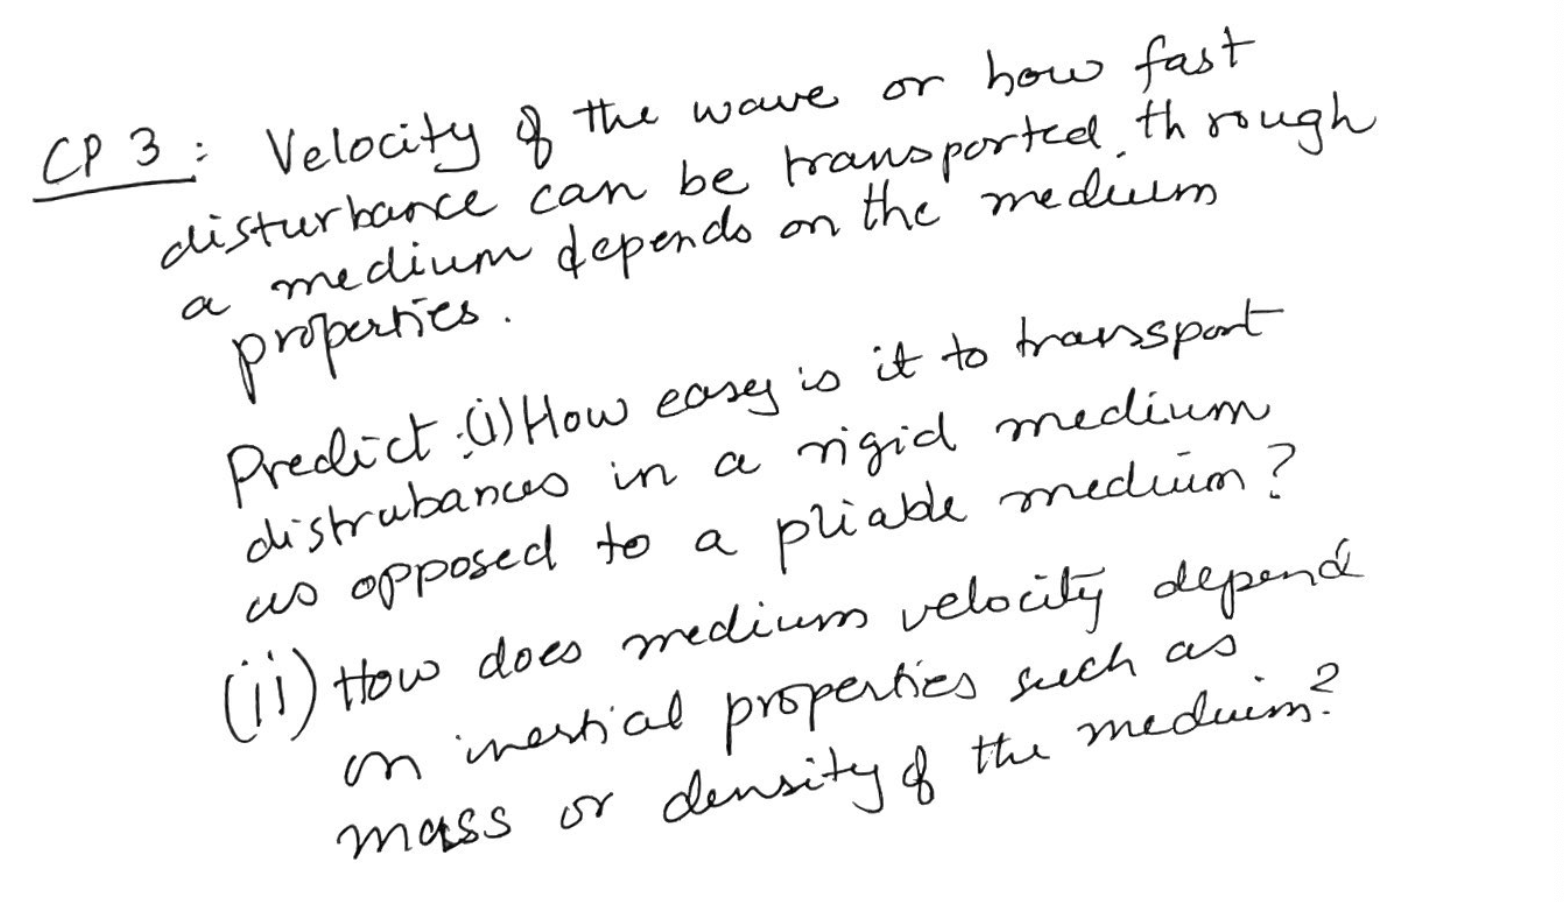 CP 3 : Velocity of the wave or how fast
disturbance can be transported through
a medium depends on the medium
properties.
Predict : (i) How easy is it to transport
distrubances in a rigid medium
as opposed to a pliable medium?
(ii) How does medium velocity depend
on inertial properties such as
mass or density of the medium?